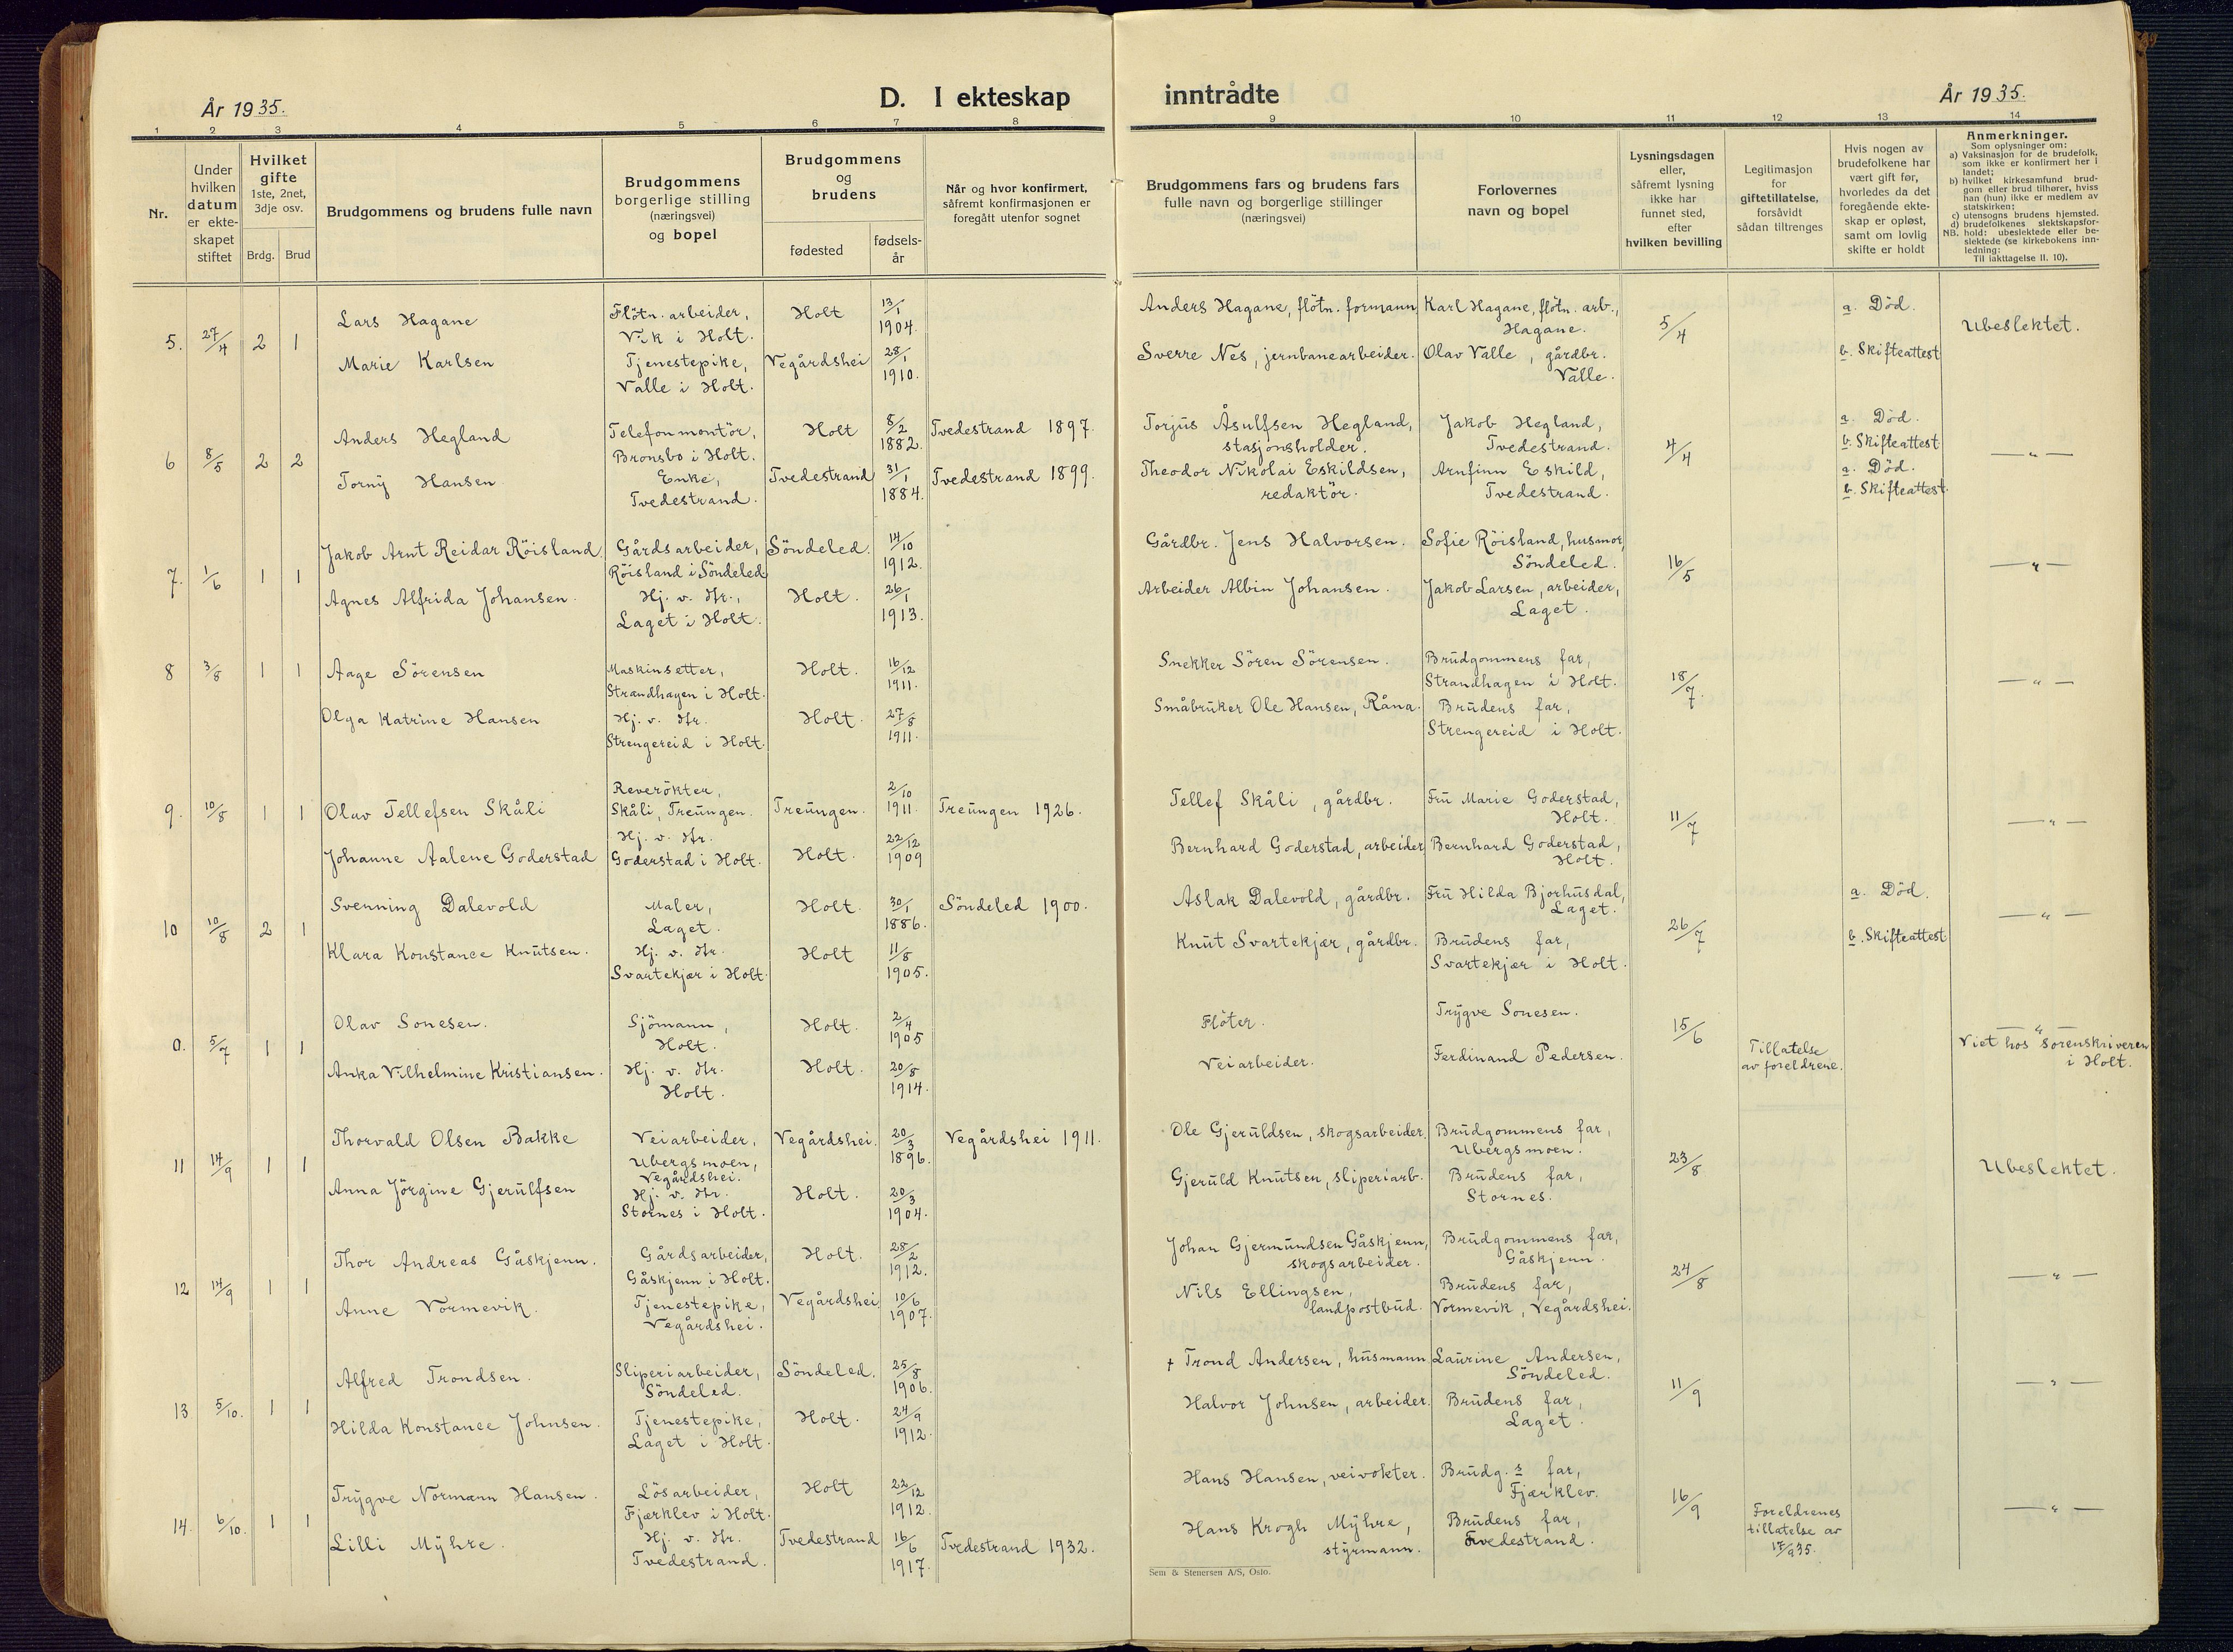 År 1935.
D. I ekteskap
inntrådte
År 1935.
1 2 3 4 5 6 7 8 9 10 11 12 13 14
Nr.
Under
hvilken
datum
er ekte-
skapet
stiftet
Hvilket
gifte
1ste, 2net,
3dje osv.
Brdg. Brud
Brudgommens og brudens fulle navn
Brudgommens
borgerlige stilling
(næringsvei)
og bopel
Brudgommens
og
brudens
fødested
fødsels-
år
Når og hvor konfirmert,
såfremt konfirmasjonen er
foregått utenfor sognet
Brudgommens fars og brudens fars
fulle navn og borgerlige stillinger
(næringsvei)
Forlovernes
navn og bopel
Lysningsdagen
eller,
såfremt lysning
ikke har
funnet sted,
efter
hvilken bevilling
Legitimasjon
for
giftetillatelse,
forsåvidt
sådan tiltrenges
Hvis nogen av
brudefolkene har
vært gift før,
hvorledes da det
foregående ekte-
skap er opløst,
samt om lovlig
skifte er holdt
Anmerkninger.
Som oplysninger om:
a) Vaksinasjon for de brudefolk,
som ikke er konfirmert her i
landet;
b) hvilket kirkesamfund brud-
gom eller brud tilhører, hviss
han (hun) ikke er medlem av
statskirken;
c) utensogns brudens hjemsted.
d) brudefolkenes slektskapsfor-
NB. hold: ubeslektede eller be-
slektede (se kirkebokens inn-
ledning:
Til iakttagelse II. 10).
5. 27/4 2 1
Lars Hagane
Flötn. arbeider,
Vik i Holt.
Holt
13/1
1904.
Anders Hagane, flötn. formann
Karl Hagane, flötn. arb.,
Hagane.
5/4
a. Död.
Ubeslektet.
Marie Karlsen
Tjenestepike,
Valle i Holt.
Vegårdshei
28/1
1910.
Sverre Nes, jernbanearbeider.
Olav Valle, gårdbr.
Valle.
b. Skifteattest
6 8/5 2 2
Anders Hegland
Telefonmontör,
Bronsbo i Holt.
Holt
8/2
1882.
Tvedestrand 1897.
Torjus Åsulfsen Hegland,
stasjonsholder.
Jakob Hegland,
Tvedestrand.
4/4
a. Död.
b. Skifteattest
— " —
Torny Hansen
Enke,
Tvedestrand.
Tvedestrand
31/1
1884.
Tvedestrand 1899.
Theodor Nikolai Eskildsen,
redaktör.
Arnfinn Eskild,
Tvedestrand.
a. Död.
b. Skifteattest.
7. 1/6 1 1
Jakob Arnt Reidar Röisland
Gårdsarbeider,
Röisland i Söndeled
Söndeled.
14/10
1912.
Gårdbr. Jens Halvorsen.
Sofie Röisland, husmor,
Söndeled.
16/5
— " —
Agnes Alfrida Johansen.
Hj. v. Hr.,
Laget i Holt.
Holt.
26/1
1913.
Arbeider Albin Johansen.
Jakob Larsen, arbeider,
Laget.
8 3/8 1 1
Aage Sörensen
Maskinsetter,
Strandhagen i Holt.
Holt.
16/12
1911.
Snekker Sören Sörensen.
Brudgommens far,
Strandhagen i Holt.
18/7.
— " —
Olga Katrine Hansen
Hj. v. Hr.
Strengereid i Holt.
Holt.
27/8
1911.
Småbruker Ole Hansen, Råna.
Brudens far,
Strengereid i Holt.
9. 10/8 1 1
Olav Tellefsen Skåli
Reverökter,
Skåli, Treungen.
Treungen.
2/10
1911.
Treungen 1926.
Tellef Skåli, gårdbr.
Fru Marie Goderstad,
Holt.
11/7
— " —
Johanne Aalene Goderstad
Hj. v. Hr.
Goderstad i Holt.
Holt.
22/12
1909
Bernhard Goderstad, arbeider
Bernhard Goderstad,
Holt.
10 10/8 2 1
Svenning Dalevold
Maler,
Laget.
Holt.
30/1
1886.
Söndeled 1900.
Aslak Dalevold, gårdbr.
Fru Hilda Bjorhusdal,
Laget.
26/7
a. Död.
— " —
Klara Konstance Knutsen.
Hj. v. Hr.
Svartekjær i Holt.
Holt
11/8
1905.
Knut Svartekjær, gårdbr.
Brudens far,
Svartekjær i Holt.
b. Skifteattest
0. 5/7 1 1
Olav Sonesen.
Sjömann,
Holt.
Holt.
2/4
1905
Flöter.
Trygve Sonesen.
15/6
Tillatelse
av foreldrene.
— " —
Viet hos sorenskriveren
i Holt.
Anka Vilhelmine Kristiansen.
Hj. v. Hr.
Holt.
Holt.
20/8
1914.
Veiarbeider.
Ferdinand Pedersen.
11 14/9 1 1
Thorvald Olsen Bakke
Veiarbeider,
Ubergsmoen,
Vegårdshei.
Vegårdshei.
20/3
1896.
Vegårdshei 1911.
Ole Gjeruldsen, skogsarbeider.
Brudgommens far,
Ubergsmoen.
23/8
Ubeslektet.
Anna Jörgine Gjerulfsen
Hj. v. Hr.
Stornes i Holt.
Holt.
20/3
1904.
Gjeruld Knutsen, sliperiarb.
Brudens far,
Stornes.
12 14/9 1 1
Thor Andreas Gåskjenn.
Gårdsarbeider,
Gåskjenn i Holt.
Holt.
28/2
1912.
Johan Gjermundsen Gåskjenn,
skogsarbeider.
Brudgommens far,
Gåskjenn.
24/8
— " —
Anne Vormevik.
Tjenestepike,
Vegårdshei.
Vegårdshei
10/6
1907.
Nils Ellingsen,
landpostbud.
Brudens far,
Vormevik, Vegårdshei.
13 5/10. 1 1
Alfred Trondsen.
Sliperiarbeider,
Söndeled.
Söndeled.
25/8
1906.
+ Trond Andersen, husmann
Laurine Andersen,
Söndeled.
11/9
— " —
Hilda Konstance Johnsen.
Tjenestepike,
Laget i Holt.
Holt.
24/9
1912.
Halvor Johnsen, arbeider.
Brudens far,
Laget.
14. 6/10. 1 1
Trygve Normann Hansen.
Lösarbeider,
Fjærklev i Holt.
Holt
22/12
1912.
Hans Hansen, veivokter.
Brudg.s far,
Fjærklev.
16/9
Foreldrenes
tillatelse av
17/9 35.
— " —
Lilli Myhre.
Hj. v. Hr.
Tvedestrand.
Tvedestrand
16/6
1917.
Tvedestrand 1932.
Hans Krogh Myhre,
styrmann.
Brudens far,
Tvedestrand.
Sem & Stenersen A/S, Oslo.